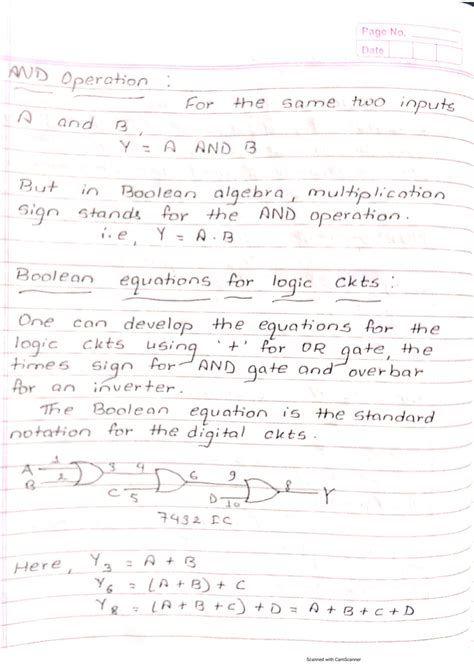 Page No.
Date
AND Operation :
For the same two inputs
A and B,
Y = A AND B
But in Boolean algebra, multiplication
sign stands for the AND operation.
i.e, Y = A . B
Boolean equations for logic ckts :
One can develop the equations for the
logic ckts using '+' for OR gate, the
times sign for AND gate and overbar
for an inverter.
The Boolean equation is the standard
notation for the digital ckts.
A 1 3 4 6 9 8 Y
B 2 C 5 D 10
7432 IC
Here, Y3 = A + B
Y6 = (A + B) + C
Y8 = (A + B + C) + D = A + B + C + D
Scanned with CamScanner